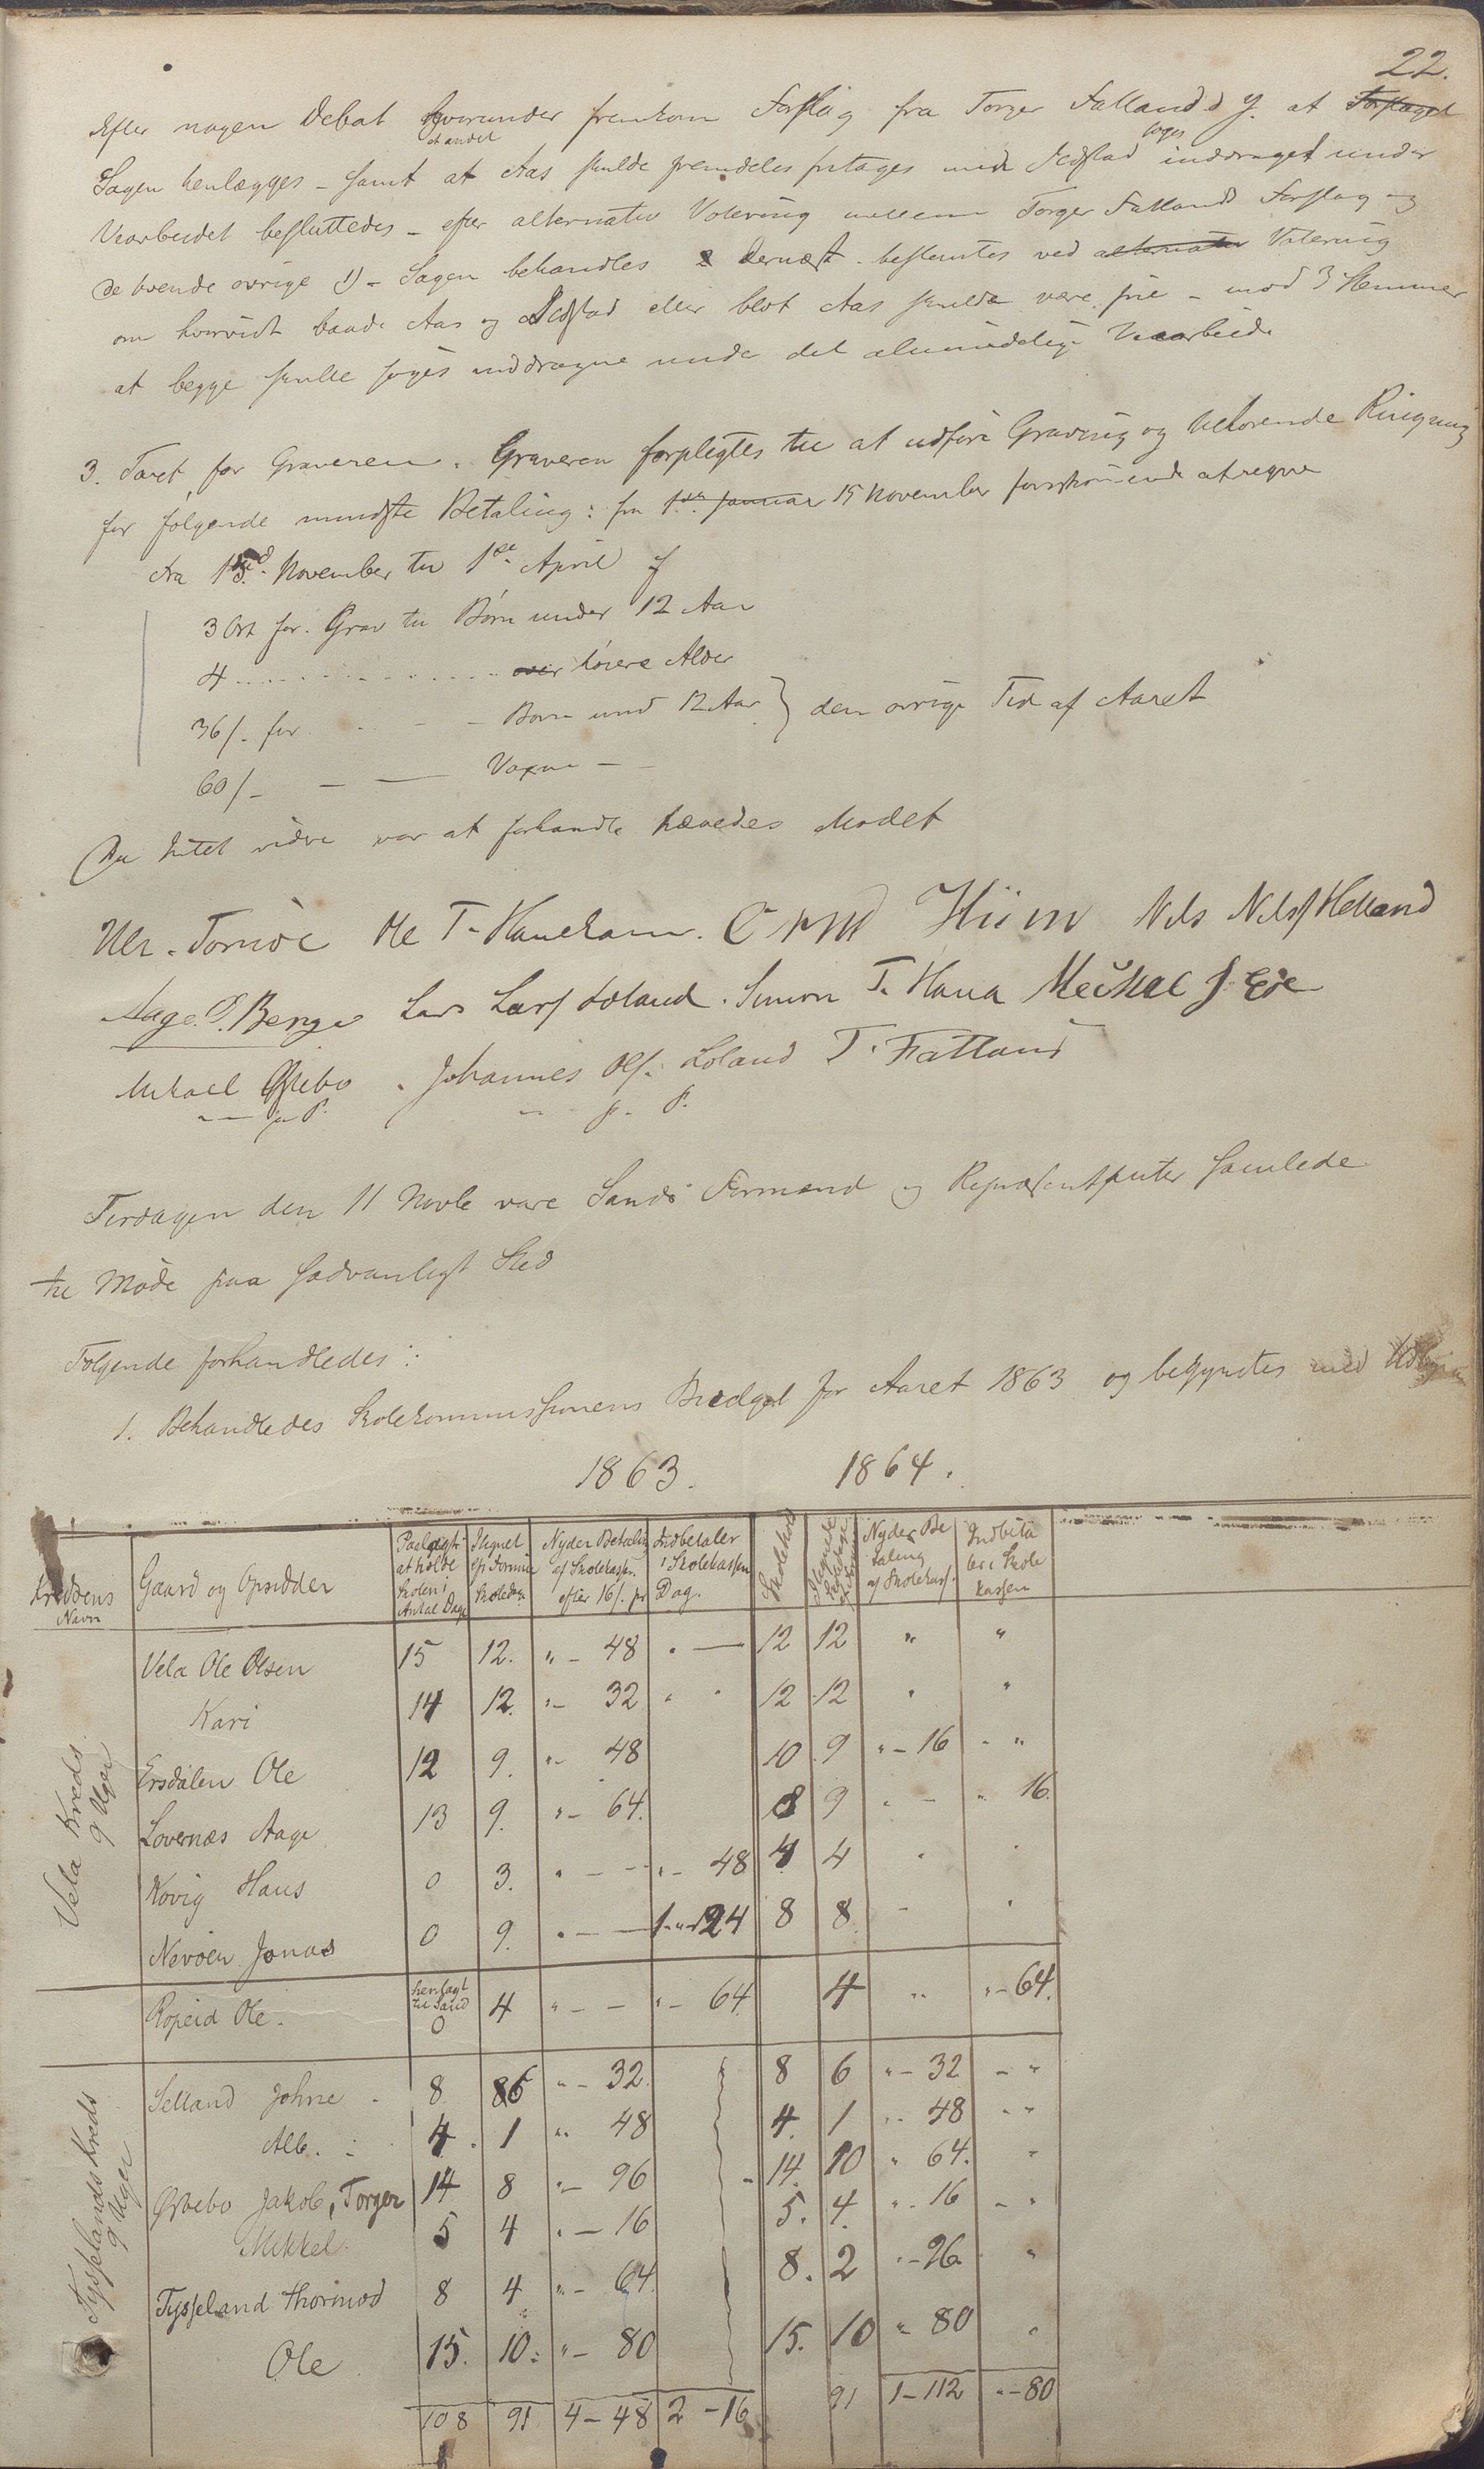 22.
Efter nogen Debat hvorunder fremkom Forslag fra Torger Fatland d. y. at Forslaget
et andet
Sagen henlægges - samt at Aas skulde fremdeles fritages men Jedstad søges inddraget under
Vearbeidet besluttedes - efter alternativ Votering mellem Torger Fatlands Forslag og
de tvende øvrige 1) - Sagen behandles & dernæst bestemtes ved alternativ Votering
om hvorvidt baade Aas og Jedstad eller blot Aas skulde være frie - mod 3 Stemmer
at begge skulle søges inddragne under det almindelige Veiarbeide
3. Taxt for Graveren. Graveren forpligtes til at udføre Graving og vedkommende Ringning
for følgende mindste Betaling: fra 1ste Januar 15 November førstkommende at regne
Fra 15de November til 1ste April
3 Ort for Grav til Børn under 12 Aar
4 . . . . . . . . . over høiere Alder
36 /- for - - Børn und 12 Aar } den øvrige Tid af Aaret
60 /- - - Voxne -
Da Intet videre var at forhandle hævedes Mødet
Ole T. Hauekam. Hiim Nils Nilss Helland
Aage P. Berge Lars Larss Løland. Simon T. Hana Meikel J. Eie
Mikael Østebø . Johannes Ols. Løland T. Fatland
- - p. P. - - p. P.
Tirsdagen den 11 Novbr vare Sands Formænd og Repræsentanter samlede
til Møde paa sædvanligt Sted
Følgende forhandledes:
1. Behandledes Skolekommissionens Budget for Aaret 1863 og begyndtes med
1863. 1864.
Kredsens Navn | Gaard og Opsidder | Paalagt at holde Skolen i Antal Dage | Ilignet efter Formue Skoledage | Nyder Betaling af Skolekassen efter 16 /. pr | Indbetaler i Skolekassen Dag. | Skolehold | Ilignede | Nyder Betaling af Skolekass. | Indbetaler i Skolekassen
Vela Kreds 9 Uger
Vela Ole Olsen 15 12. " - 48 " - 12 12 " "
Kari 14 12. " - 32 " " 12 12 " "
Ersdalen Ole 12 9. " - 48 10 9 " - 16 - "
Lovernæs Aage 13 9. " - 64. 8 9 " - " 16.
Kovig Hans 0 3. " - - " - 48 4 4 " "
Nevøen Jonas 0 9. " - - 1 - " 24 8 8 - "
Ropeid Ole. henlagt til Sand 0 4 " - - " - 64. 4 " " - 64.
Tysselands Kreds 9 Uger
Selland Johne - 8 6 " - 32. 8 6 " - 32 - "
Alb. - 4. 1 " 48 4. 1 " 48 - "
Østebø Jakob, Torger 14 8 " - 96 14. 10 " 64. "
Mikkel. 5 4 " - 16 5. 4. " 16 - "
Tysseland Thormod 8 4 " - 64. 8. 2 " - 96 "
Ole 15. 10. " - 80 15. 10 " 80 "
108 91 4 - 48 2 - 16 91 1 - 112 " - 80